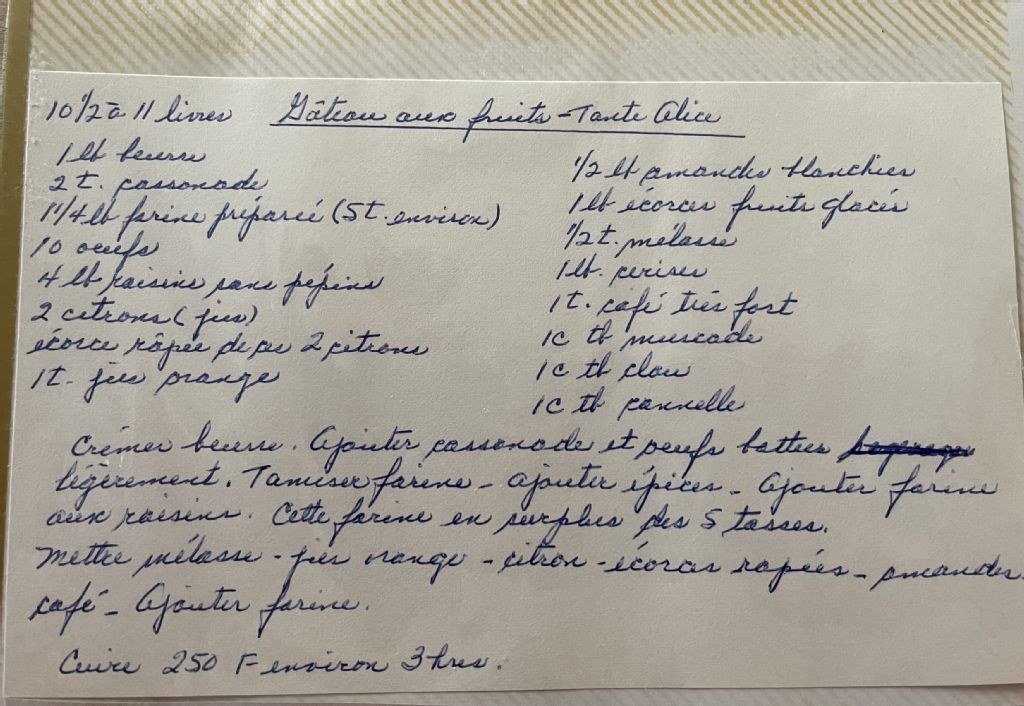 10 1/2 à 11 livres Gâteau aux fruits - Tante Alice
1 lb beurre
2 t. cassonade
1 1/4 lb farine préparée (5 t. environ)
10 oeufs
4 lb raisins sans pépins
2 citrons (jus)
écorce râpée de ces 2 citrons
1 t. jus orange
1/2 lb amandes blanchies
1 lb écorces fruits glacés
1/2 t. mélasse
1 lb. cerises
1 t. café très fort
1 c tb muscade
1 c tb clou
1 c tb cannelle
Crémer beurre. Ajouter cassonade et oeufs battus
légèrement. Tamiser farine - ajouter épices - Ajouter farine
aux raisins. Cette farine en surplus des 5 tasses.
Mettre mélasse - jus orange - citron - écorces rapées - amandes -
café - Ajouter farine.
Cuire 250 F environ 3 hres.